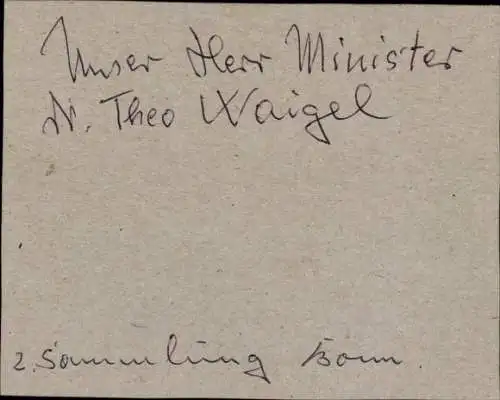 Unser Herr Minister
Dr. Theo Waigel
2. Sammlung Bonn.